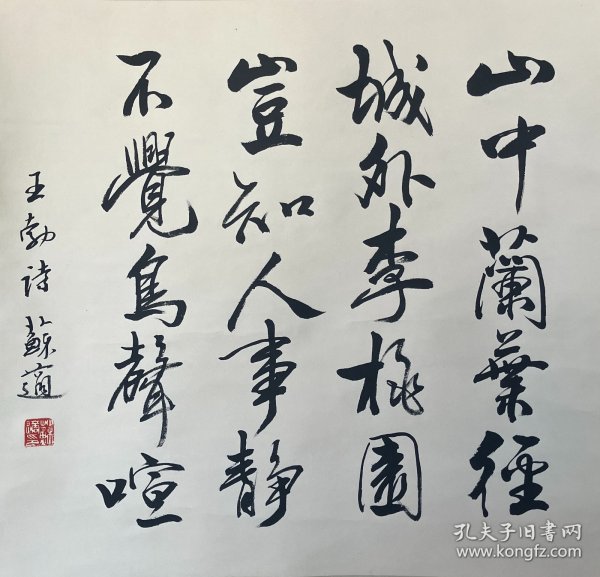 山中蘭葉徑
城外李桃園
豈知人事静
不覺鳥聲喧
王勃诗 蘇適
孔夫子旧书网
www.kongfz.com